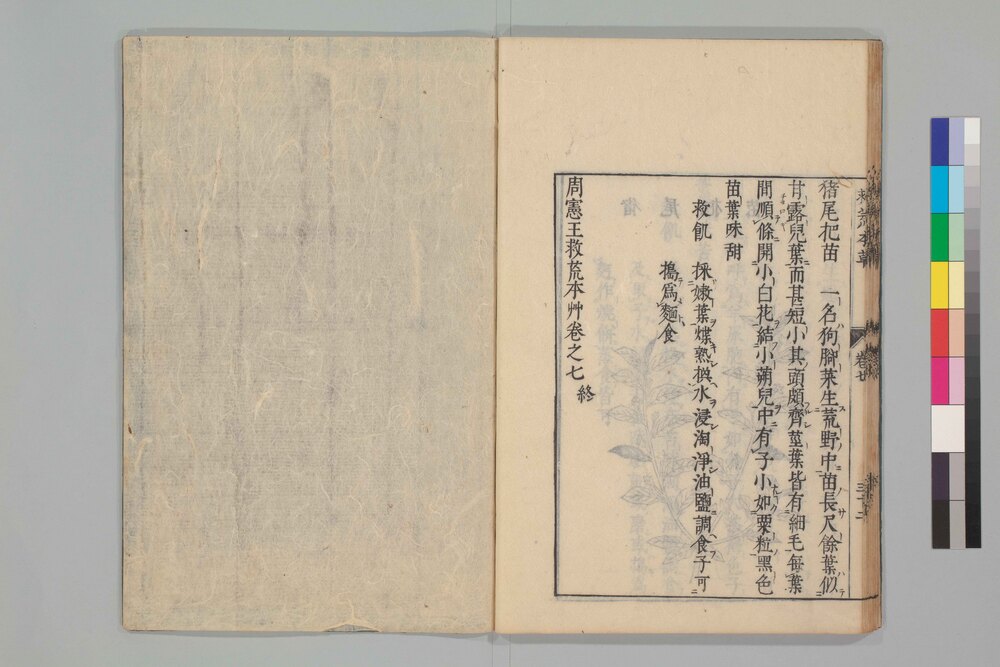 猪尾把苗　一名狗腳菜生荒野中苗長尺餘葉似
甘露兒葉而甚短小其頭頗齊莖葉皆有細毛每葉
間順條開小白花結小蒴兒中有子小如粟粒黑色
苗葉味甜
救飢　採嫩葉煠熟換水浸淘淨油鹽調食子可
搗爲麵食
周憲王救荒本艸卷之七　終
救荒本草
卷七
三十二